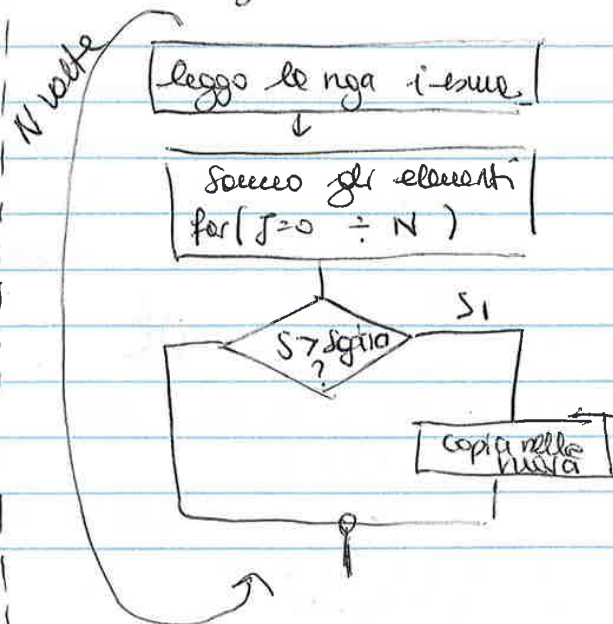 N volte
leggo la riga i-esima
sommo gli elementi
for( J=0 ÷ N )
S > soglia
?
SI
copia nella
nuova